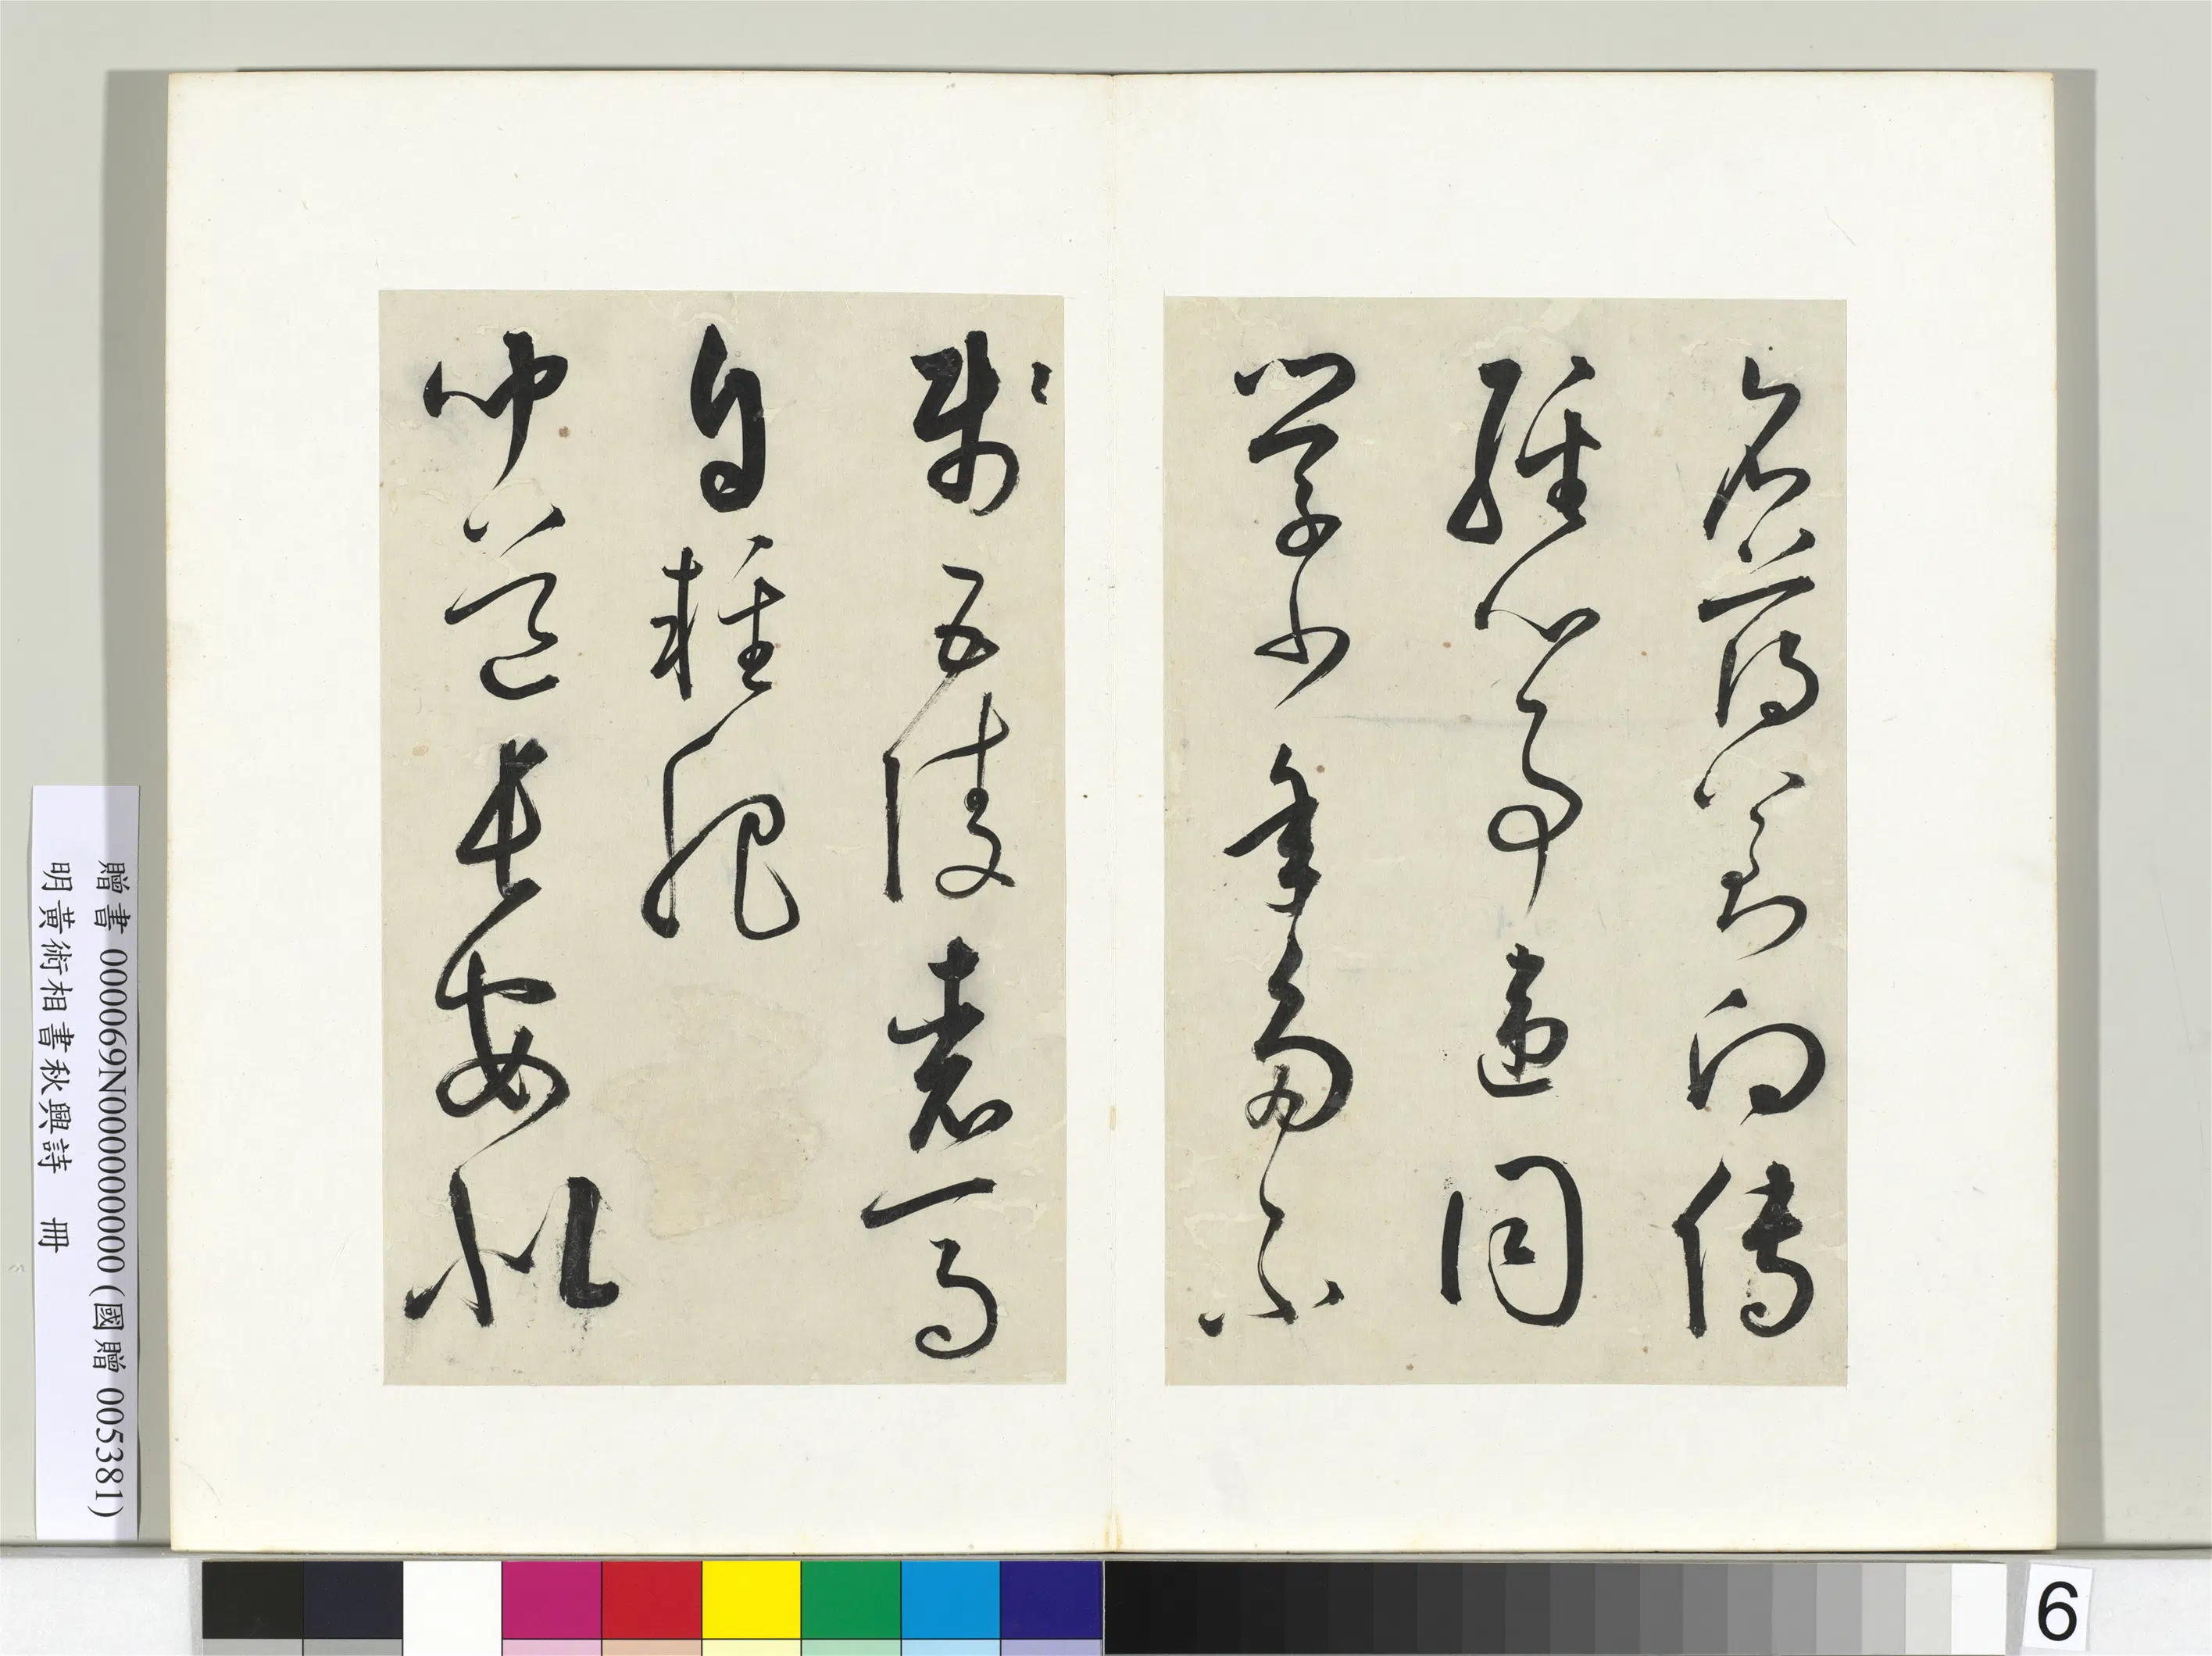 名薄劉向傳
經心事違同
學少年多不
賤五陵裘馬
自輕肥
聞道長安似
贈書 000069N000000000 (國贈 005381)
明黃術相書秋興詩 冊
6